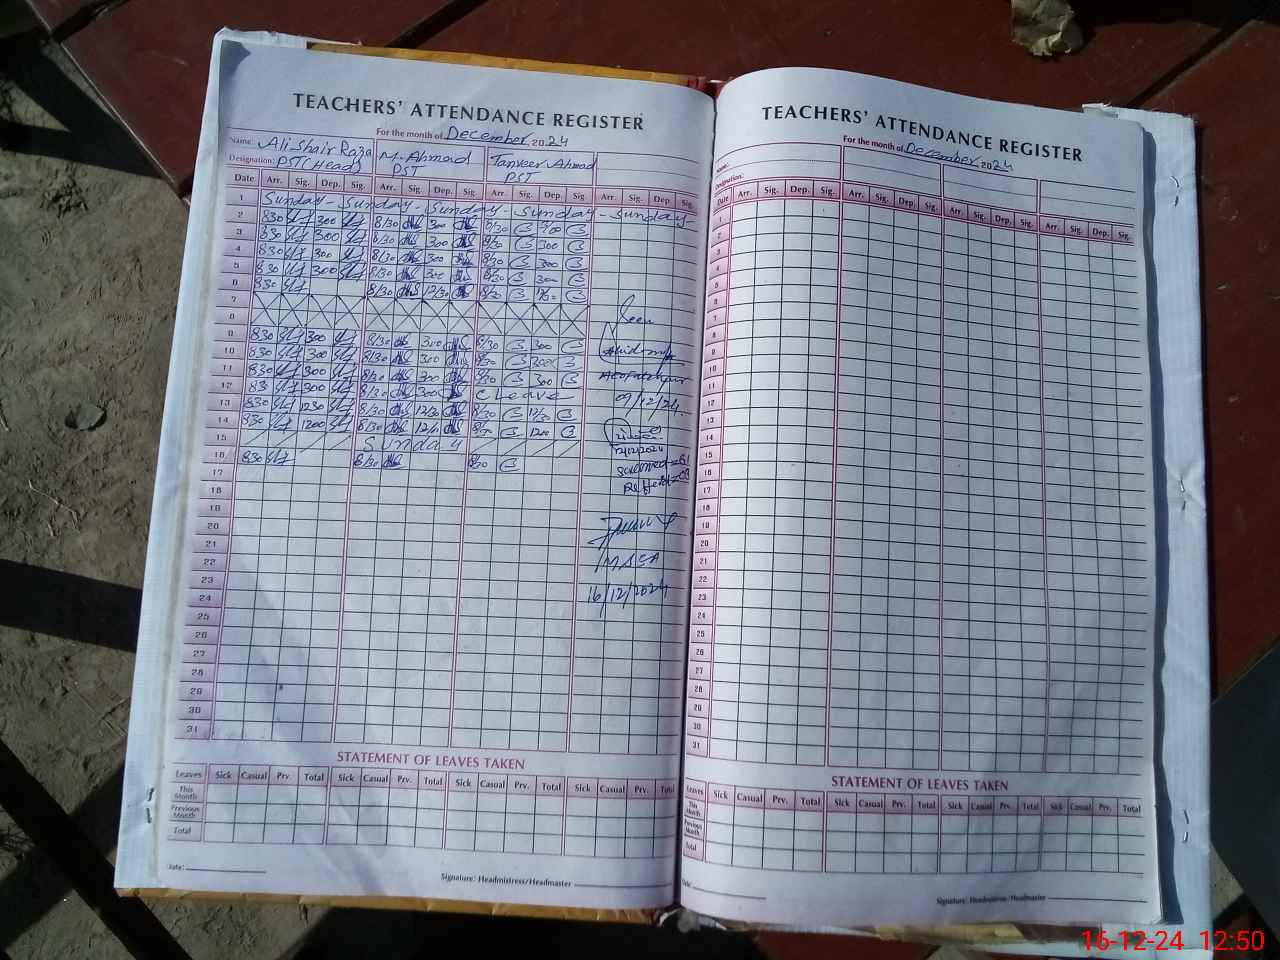 TEACHERS' ATTENDANCE REGISTER
For the month of December 2024
Name: Ali Shair Raza M. Ahmad Tanveer Ahmad
Designation: PST(Head) PST PST
Date Arr. Sig. Dep. Sig. Arr. Sig. Dep. Sig. Arr. Sig. Dep. Sig. Arr. Sig. Dep. Sig.
1 Sunday - Sunday - Sunday - Sunday - Sunday -
2 830 300 8/30 300 8/30
3 830 300 8/30 300 8/30 300
4 830 300 8/30 300 8/30 300
5 830 300 8/30 300 8/30 300
6 830 8/30 12/30 8/30
7
8 Seen
9 830 300 8/30 300 8/30 300
10 830 300 8/30 300 8/30
11 830 300 8/30 300 8/30 300
12 300 8/30 300 C Leave 09/12/24
13 830 1230 8/30 12/30 8/30 12/30
14 830 1200 8/30 1200
15 Sunday 12/12/2024
16 830 8/30 8/30
17
18
19
20
21
22
23
24 16/12/2024
25
26
27
28
29
30
31
STATEMENT OF LEAVES TAKEN
Leaves Sick Casual Prv. Total Sick Casual Prv. Total Sick Casual Prv. Total Sick Casual Prv. Total
This Month
Previous Month
Total
Date:
Signature: Headmistress/Headmaster
TEACHERS' ATTENDANCE REGISTER
For the month of December 2024
Name:
Designation:
Date Arr. Sig. Dep. Sig. Arr. Sig. Dep. Sig. Arr. Sig. Dep. Sig. Arr. Sig. Dep. Sig.
1
2
3
4
5
6
7
8
9
10
11
12
13
14
15
16
17
18
19
20
21
22
23
24
25
26
27
28
29
30
31
STATEMENT OF LEAVES TAKEN
Leaves Sick Casual Prv. Total Sick Casual Prv. Total Sick Casual Prv. Total Sick Casual Prv. Total
This Month
Previous Month
Total
Date:
Signature: Headmistress/Headmaster
16-12-24 12:50